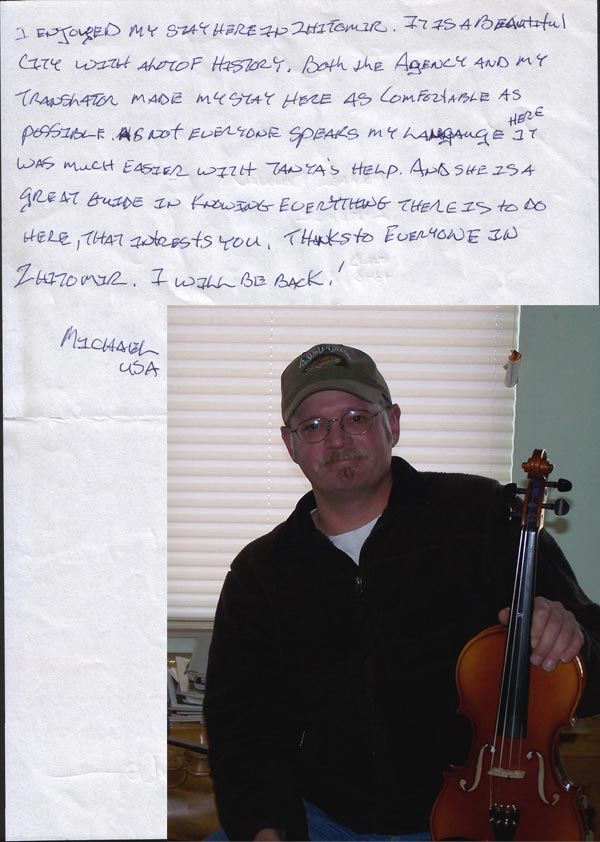 I ENJOYED MY STAY HERE IN ZHITOMIR. IT IS A BEAUTIFUL
CITY WITH A LOT OF HISTORY. BOTH THE AGENCY AND MY
TRANSLATOR MADE MY STAY HERE AS COMFORTABLE AS
POSSIBLE. AS NOT EVERYONE SPEAKS MY LANGAUGE HERE IT
WAS MUCH EASIER WITH TANYA'S HELP. AND SHE IS A
GREAT GUIDE IN KNOWING EVERYTHING THERE IS TO DO
HERE, THAT INTRESTS YOU. THANKS TO EVERYONE IN
ZHITOMIR. I WILL BE BACK!
MICHAEL
USA